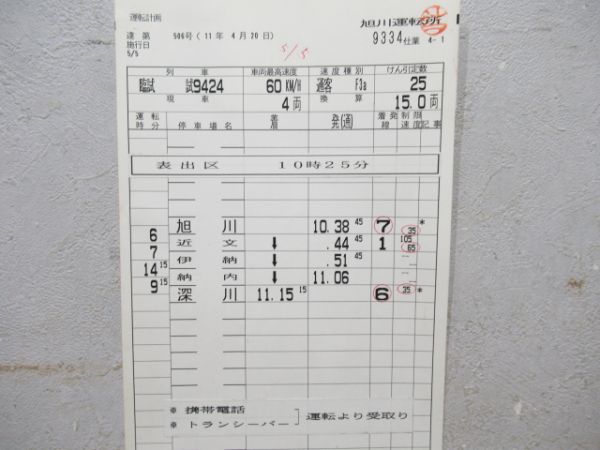 運転計画
旭川運転所
達第 506号(11年 4月20日)
9334仕業 4-1
施行日
5/5
5/5
列車 車両最高速度 速度種別 けん引定数
臨試 試9424 60KM/H 通客 F3a 25
現車 4両 換算 15.0両
運転時分 停車場名 着 発(通) 着発線 制限速度 記事
表出区 10時25分
旭川 10.38 45 7 35 *
6 近文 ↓ .44 45 1 105 65
7 伊納 ↓ .51 45
14 15 納内 ↓ 11.06
9 15 深川 11.15 15 6 35 *
※ 携帯電話
※ トランシーバー
運転より受取り